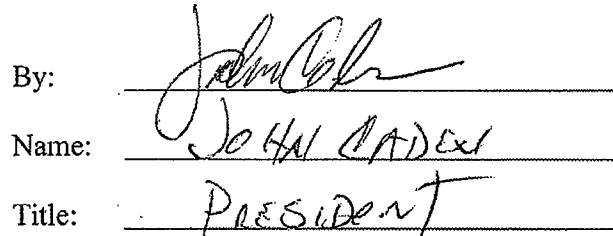 By: John Caden
Name: JOHN CADEN
Title: PRESIDENT